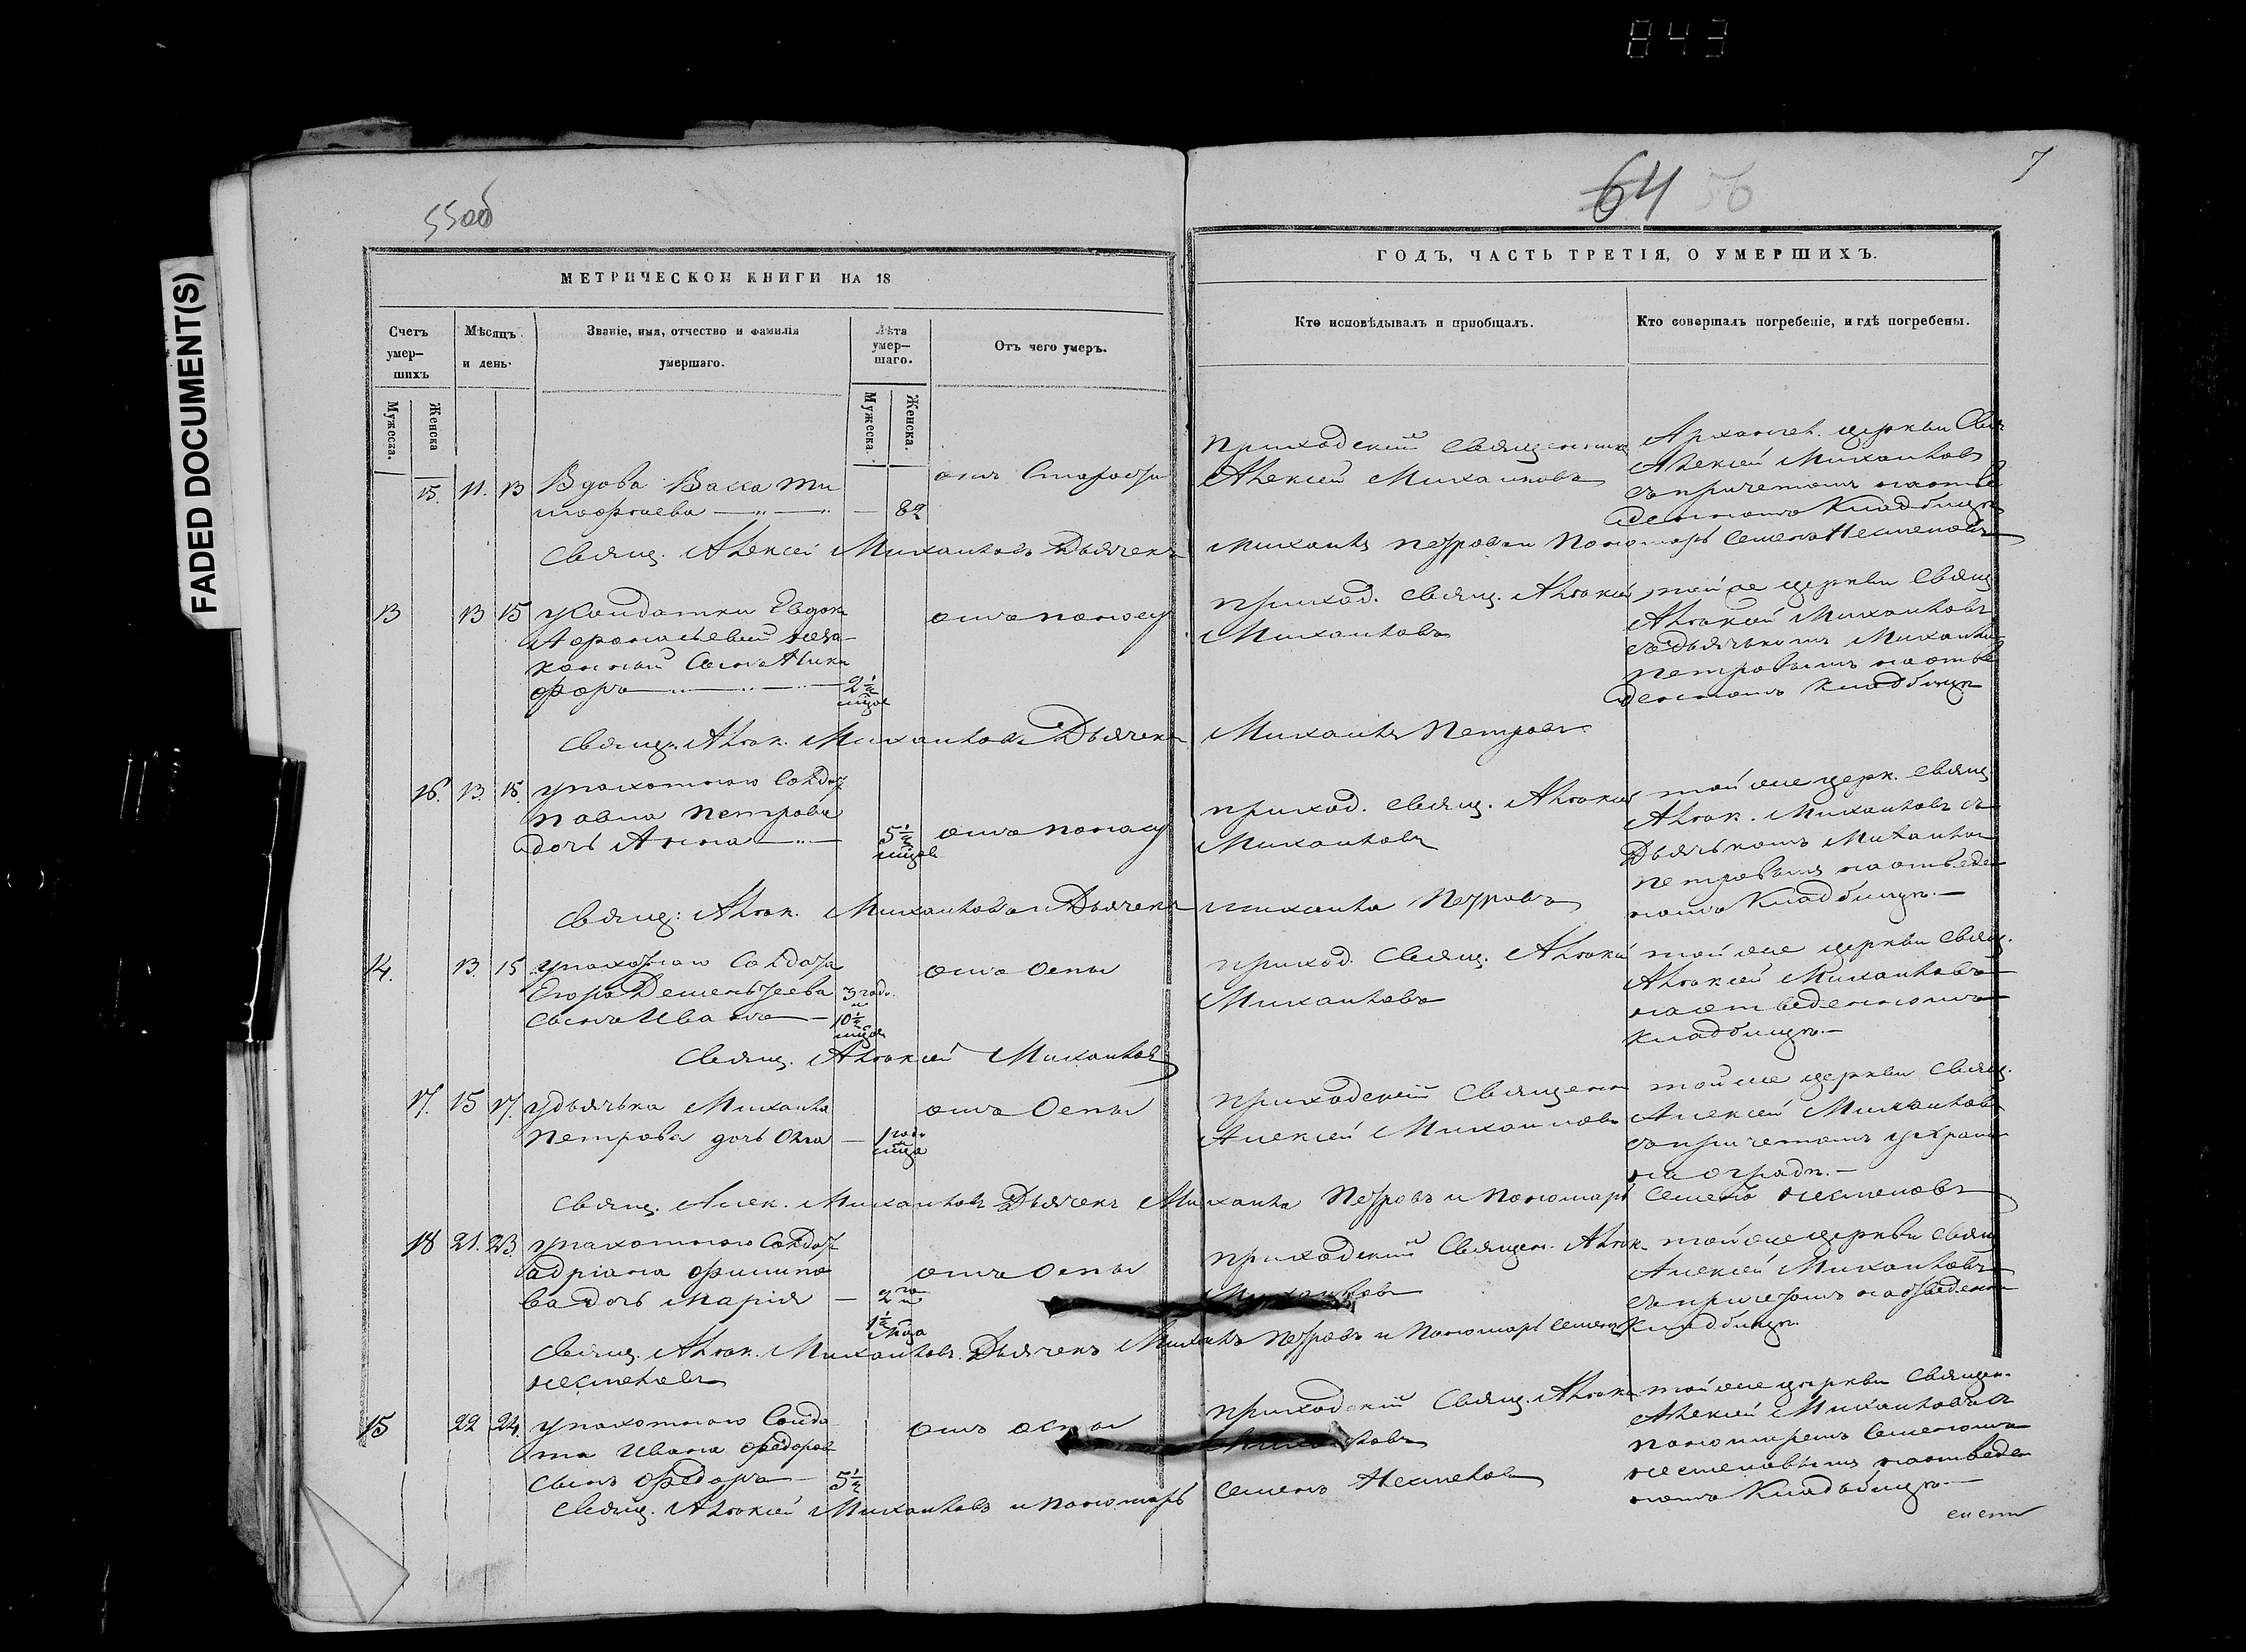 843
FADED DOCUMENT(S)
55об
64 56
7
МЕТРИЧЕСКОЙ КНИГИ НА 18
ГОДЪ, ЧАСТЬ ТРЕТІЯ, О УМЕРШИХЪ.
Счетъ умер-
шихъ
Мѣсяцъ
и день.
Званіе, имя, отчество и фамилія
умершаго.
Лѣта
умер-
шаго.
Отъ чего умеръ.
Кто исповѣдывалъ и пріобщалъ.
Кто совершалъ погребеніе, и гдѣ погребены.
Мужеска.
Женска
Мужеска.
Женска.
15. 11. 13 Вдова Васса Ти
мофеева — 82
отъ Старости
Приходскій Священникъ
Алексей Михаиловъ
Архангел. церкви Свящ
Алексей Михаиловъ
съ причетомъ на отве
денномъ Кладбище
Свящ. Алексей Михаиловъ Дьячекъ Михаилъ Петровъ и Пономарь Семенъ
13 13 15 у Солдатки Евдок
Афонасьевой неза-
конный Сынъ Ники
форъ 2 ½
мцов
отъ поносу
приход. свящ. Алексей
Михаиловъ
той же церкви Свящ
Алексей Михаиловъ
съ дьячькомъ Михаиломъ
Петровымъ на отве
денномъ кладбище
Свящ. Алек. Михаиловъ Дьячекъ Михаилъ Петровъ
16. 13. 15. у пахотного Солдат
Павла Петрова
дочь Анна 5 ½
мцов
отъ поносу
приход. свящ. Алексей
Михаиловъ
той же церк. свящ
Алек. Михаиловъ съ
Дьячькомъ Михаиломъ
Петровымъ на отведен
номъ Кладбище.—
Свящ. Алек. Михаиловъ Дьячекъ Михаилъ Петровъ
14. 13. 15 у пахотного Солдата
Егора Деменьтеева
сынъ Иванъ — 3 годо.
и
10 ½
мцов
отъ Оспы
приход. Свящ. Алексей
Михаиловъ
той же церкви Свящ.
Алексей Михаиловъ
на отведенномъ
кладбище.—
Свящ. Алексей Михаиловъ
17. 15 17. у дьячька Михаила
Петрова дочь — 1 годо
и
мца
отъ Оспы
приходскій Священн
Алексей Михаиловъ
той же церкви Свящ.
Алексей Михаиловъ
съ причетомъ у храма
на ограде.—
Свящ. Алек. Михаиловъ Дьячекъ Михаилъ Петровъ и Пономарь Семенъ
18 21. 23. у пахотного Солдат
Адріана Филипо
ва дочь Марія — 2 го
и
1 ½
мца
отъ Оспы
приходскій Священ. Алек.
Михаиловъ
той же церкви свящ
Алексей Михаиловъ
съ причетомъ на отведенн
Кладбище.
Свящ. Алек. Михаиловъ. Дьячекъ Михаилъ Петровъ и Пономарь Семенъ
15 22 24. у пахотного Солда
та Ивана Федоров
сынъ Федоръ — 5 ½
отъ оспы
приходскій Свящ. Алекс
Михаиловъ
той же церкви Священ.
Алексей Михаиловъ съ
пономаремъ Семеномъ
на отведен
номъ Кладбище.—
Свящ. Алексей Михаиловъ и пономарь Семенъ